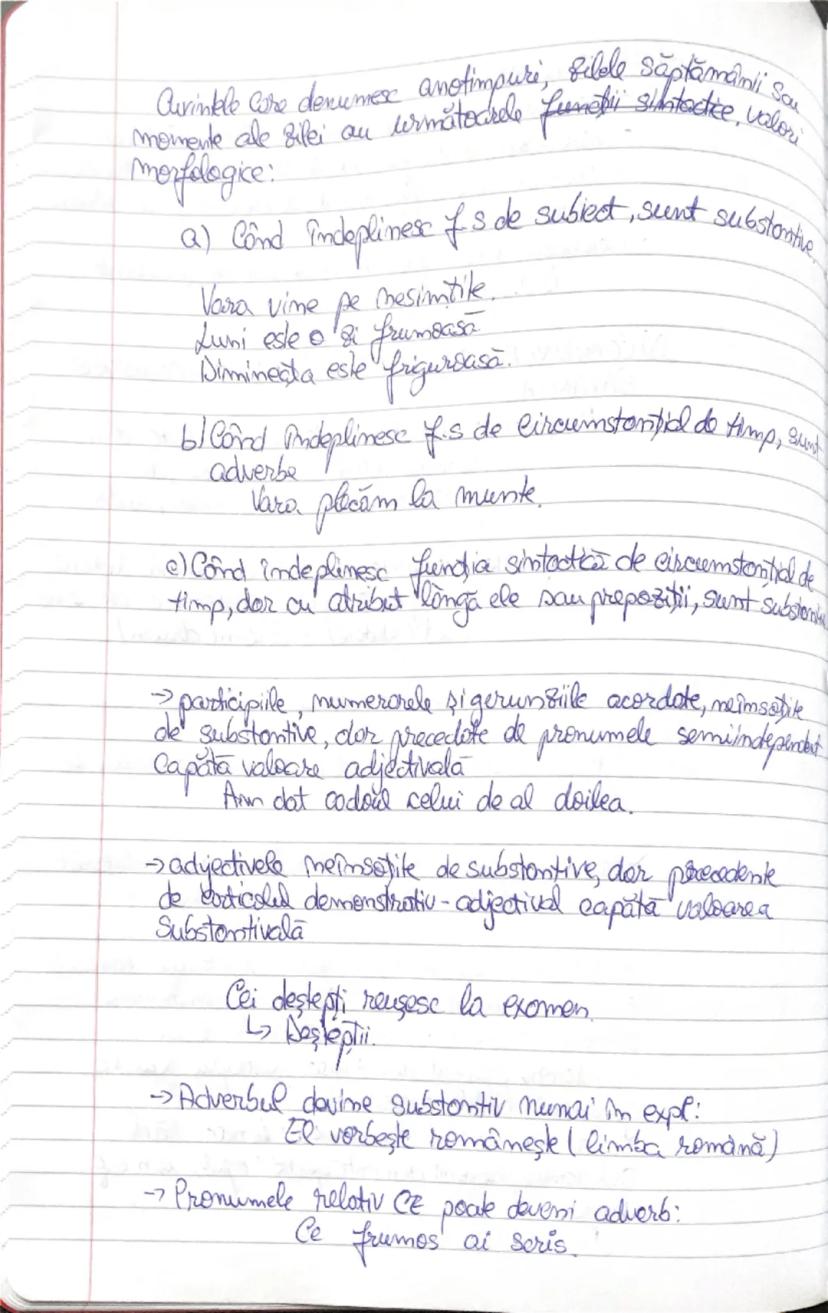 Cuvintele care denumesc anotimpuri, zilele săptămânii sau
momente ale zilei au următoarele funcții sintactice, valori
morfologice:
a) Când îndeplinesc f.s de subiect, sunt substantive.
Vara vine pe nesimțite.
Luni este o zi frumoasă
Dimineața este friguroasă.
b) Când îndeplinesc f.s de circumstanțial de timp, sunt
adverbe
Vara plecăm la munte.
c) Când îndeplinesc funcția sintactică de circumstanțial de
timp, dar cu atribut lângă ele sau prepoziții, sunt substantive
→ participiile, numerarele și gerunziile acordate, neînsoțite
de substantive, dar precedate de pronumele semiindependent
capătă valoare adjectivală
Am dat cadoul celui de al doilea.
→ adjectivele neînsoțite de substantive, dar precedente
de articolul demonstrativ - adjectival capătă valoarea
substantivală
Cei deștepți reușesc la examen.
↳ Deștepții.
→ Adverbul devine substantiv numai în expl:
El vorbește românește (limba română)
→ Pronumele relativ CE poate deveni adverb:
Ce frumos ai scris.